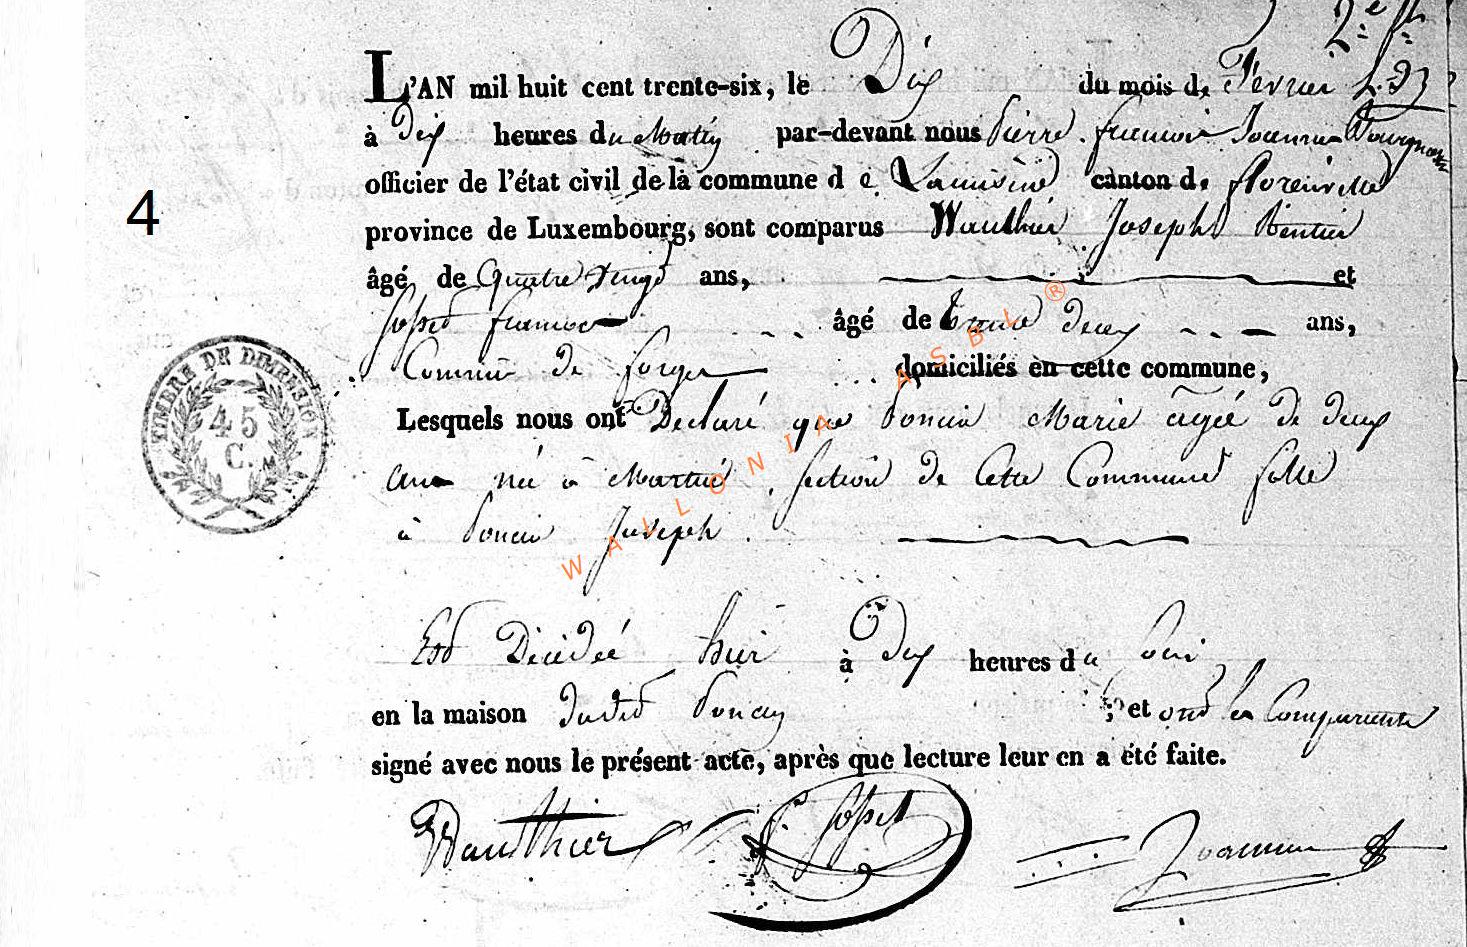 2e
L'AN mil huit cent trente-six, le Dix du mois de Février
à Dix heures du Matin par-devant nous Pierre francois Joannes
officier de l'état civil de la commune de Lacuisine canton de florenville
province de Luxembourg, sont comparus Wauthier Joseph Rentier
âgé de Quatre Vingt ans, et
4
Gofset francois âgé de trente deux ans,
Commis de forges domiciliés en cette commune,
TIMBRE DE DIMENSION
45
C.
Lesquels nous ont Declaré que Poncin Marie agée de deux
ans née à Martué section de Cette Commune fille
à Poncin Joseph
WALLONIA ASBL ®
Est Décédée hier à Dix heures du soir
en la maison dudit Poncin ; et ont les Comparants
signé avec nous le présent acte, après que lecture leur en a été faite.
Wauthier f. Gofset Joannes